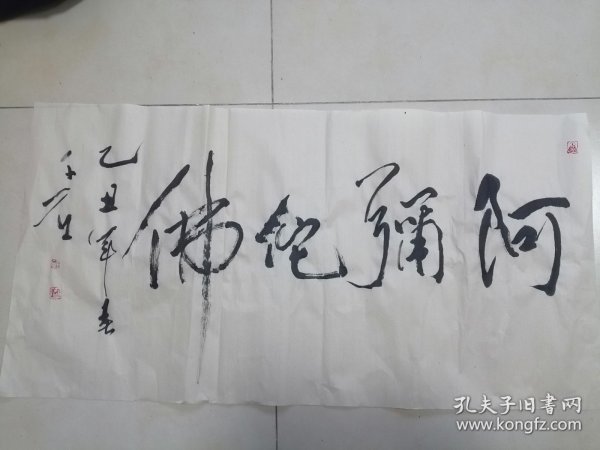 阿彌陀佛
乙丑年春
孔夫子旧书网
www.kongfz.com